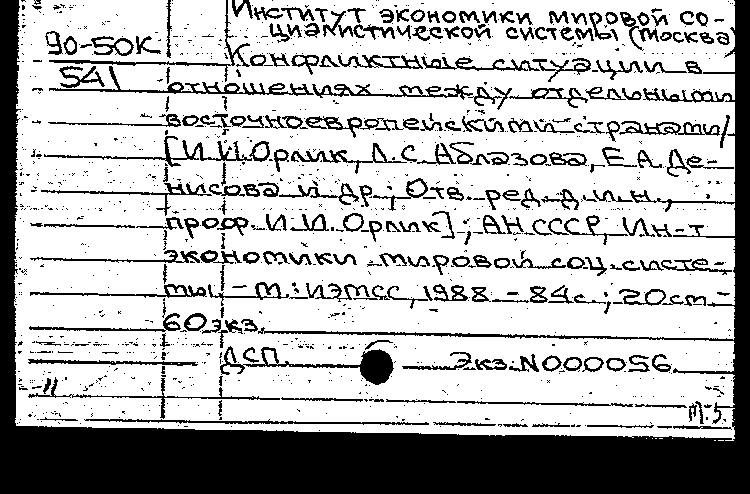 Институт экономики мировой со-
циалистической системы (Москва)
90-50К
541
Конфликтные ситуации в
отношениях между отдельными
восточноевропейскими странами/
[И.И.Орлик, Л.С. Аблазова, Е.А. Де-
нисова и др.; Отв. ред. д.и.н.,
проф. И.И. Орлик]; АН СССР, Ин-т
экономики мировой соц. систе-
мы. - М.: ИЭМСС, 1988 - 84с.; 20см. -
60экз.
ДСП. Экз.N000056.